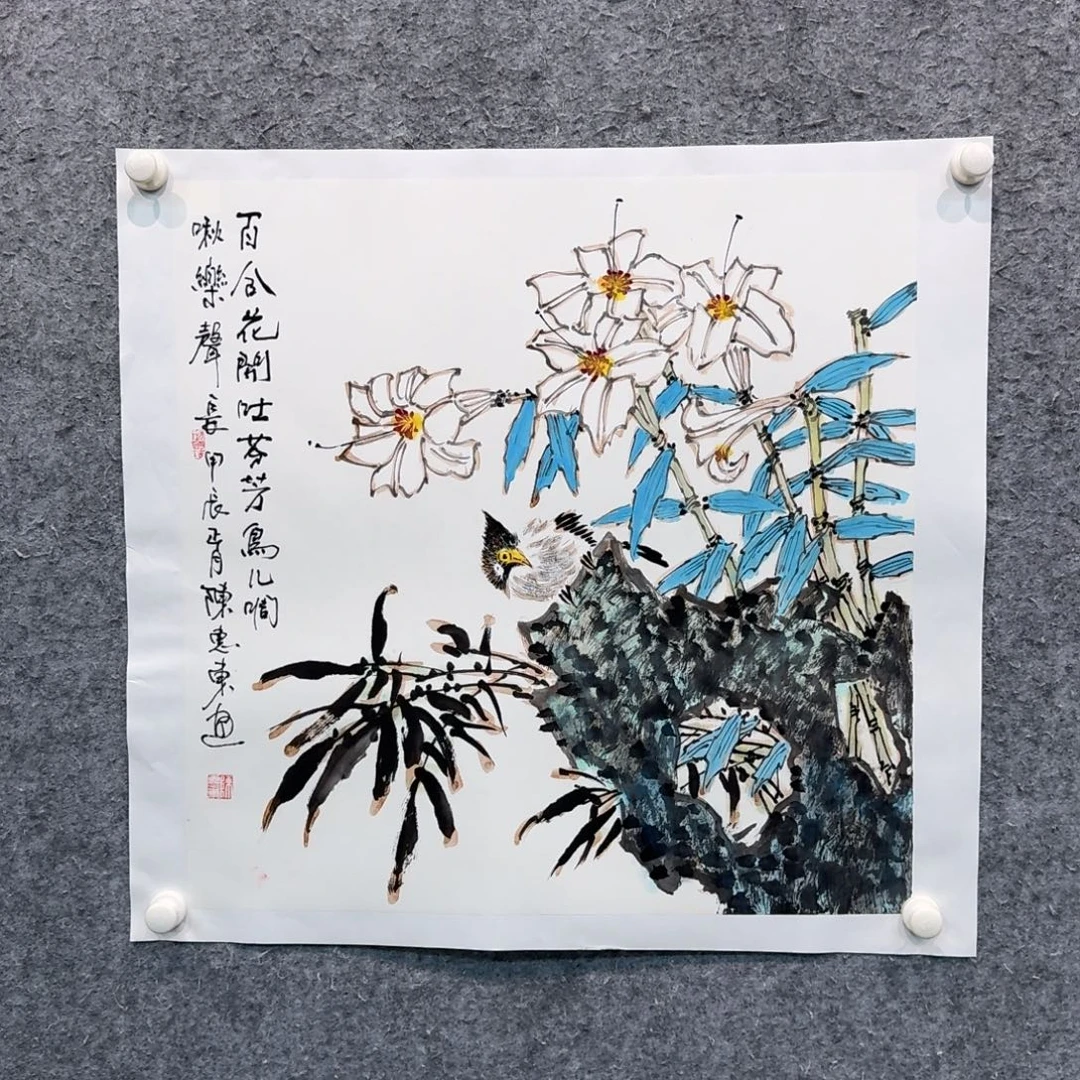 百合花開吐芬芳鳥儿啁
啾樂聲長 甲辰正月陳惠東画